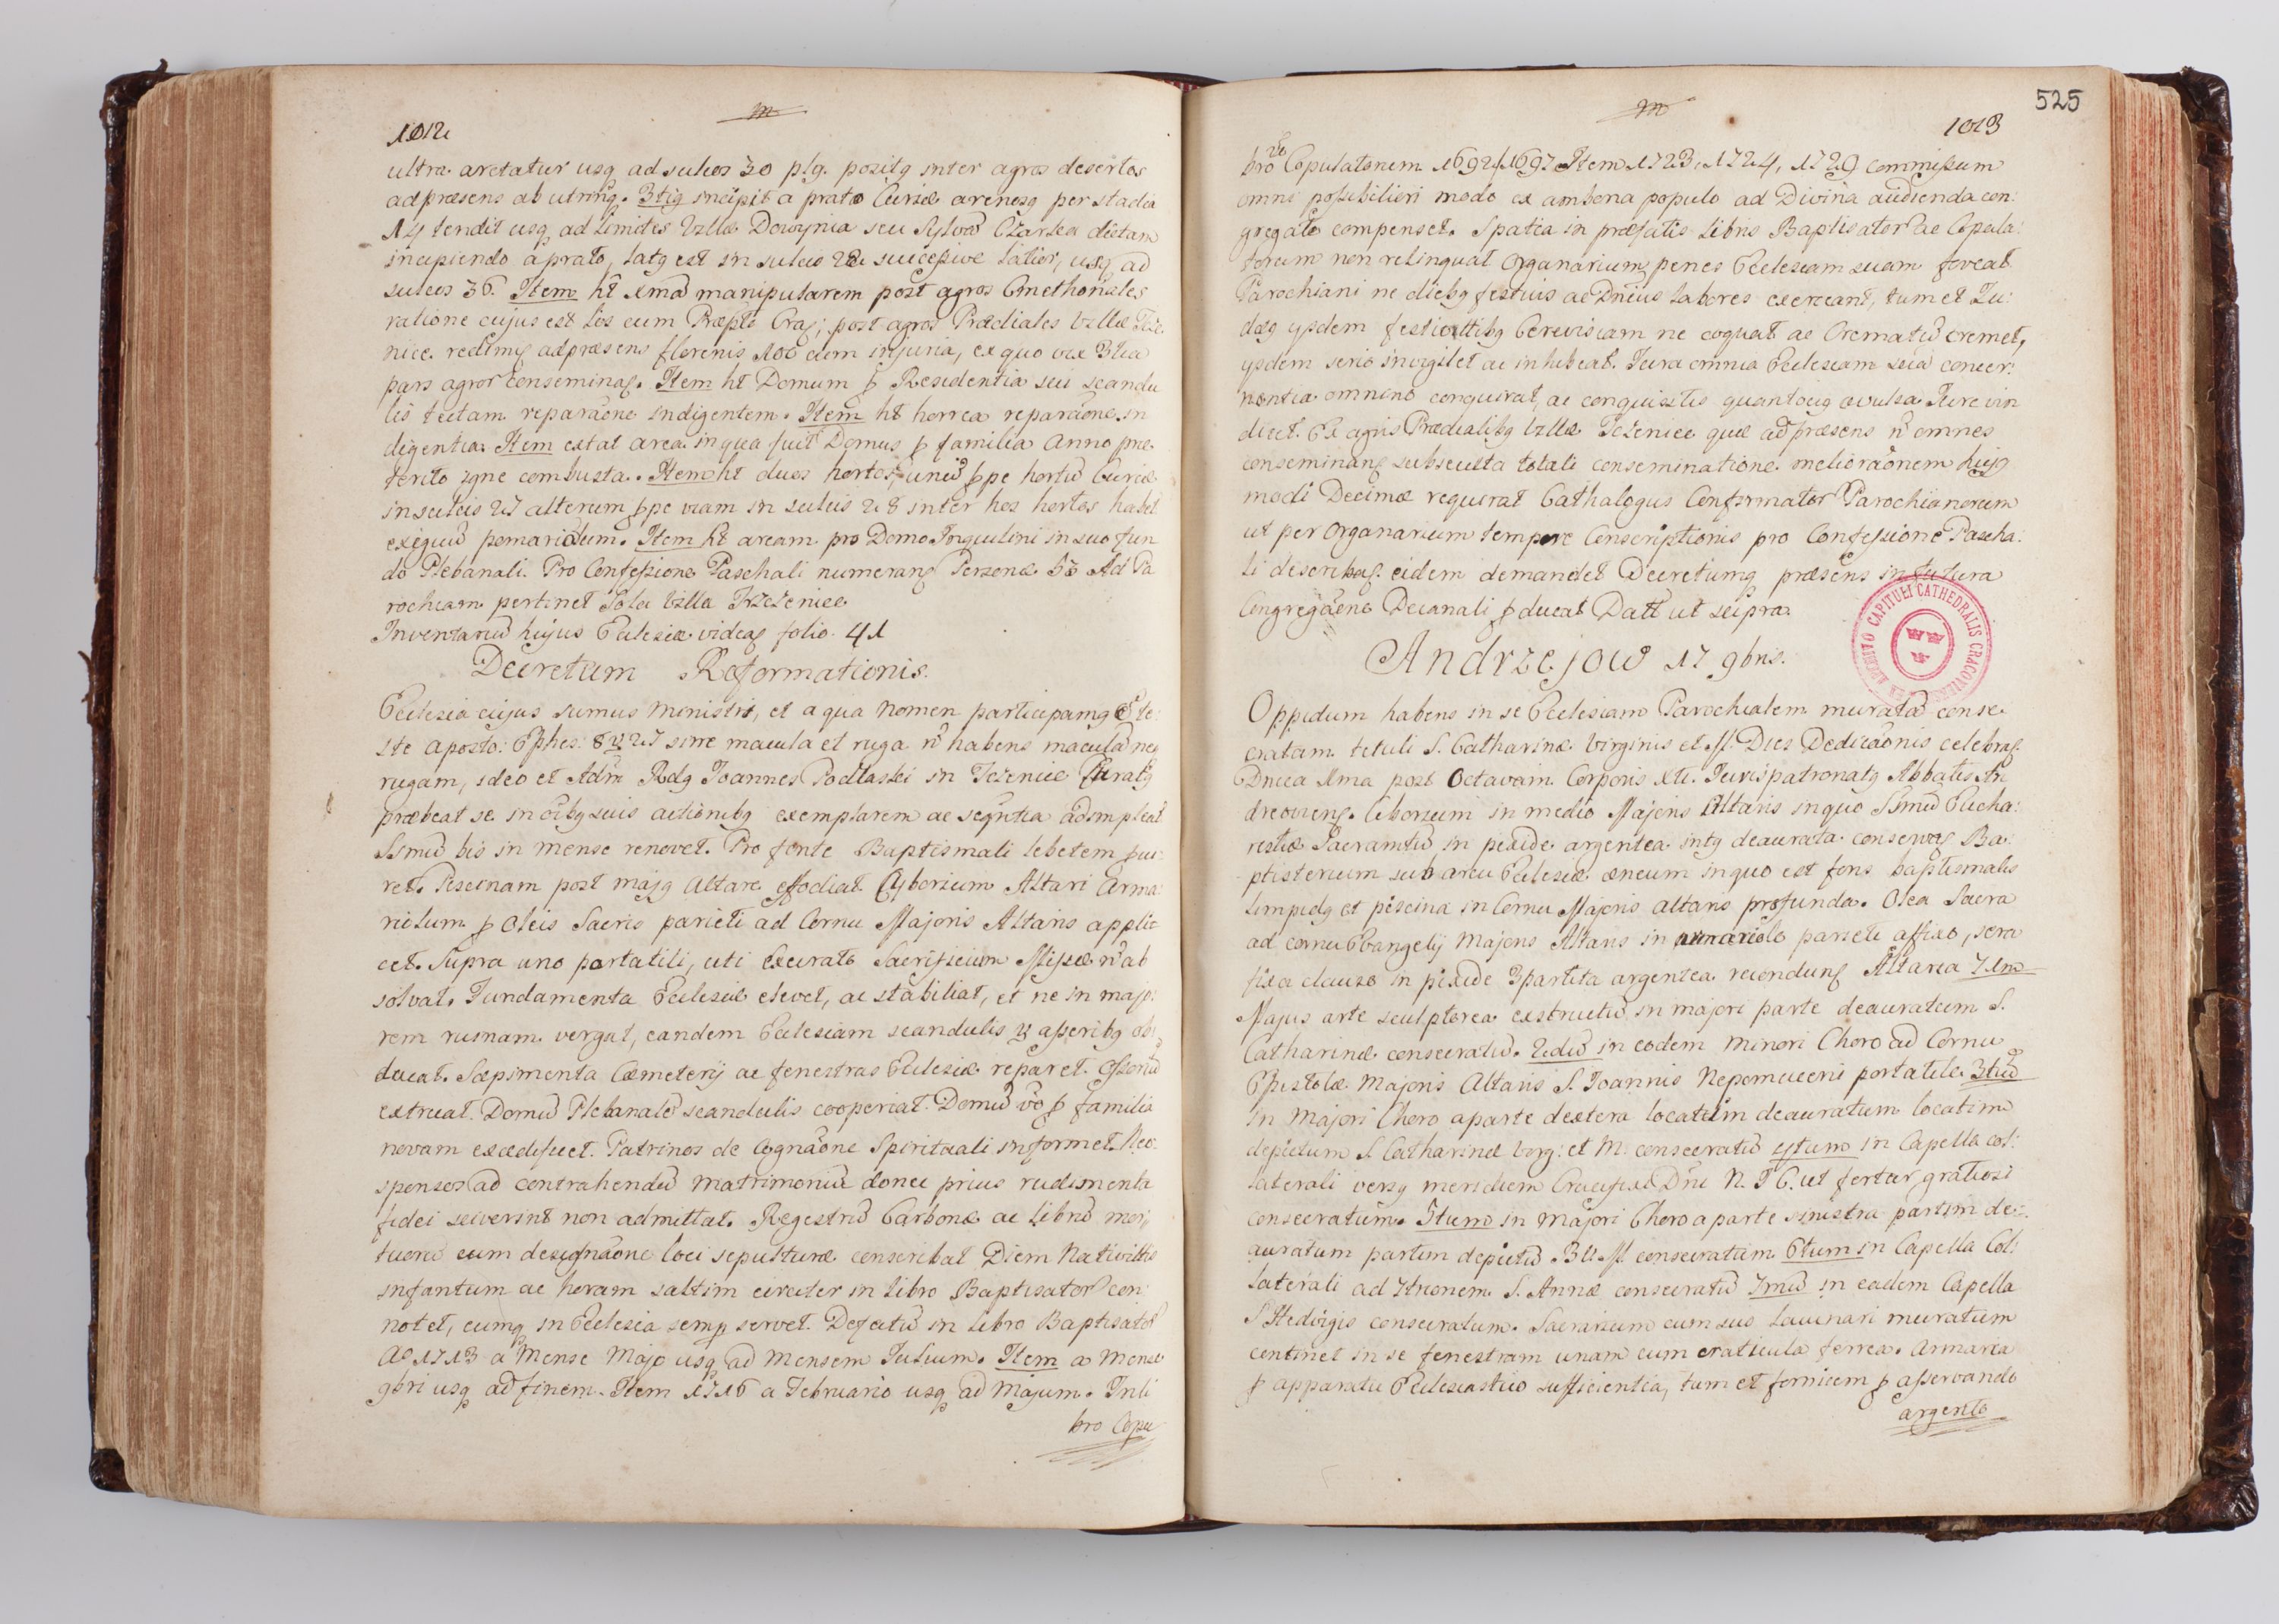 1012
m
ultra arctatur usq ad sulcos 30 plg. positg inter agros desertos
ad præsens ab utrinq. 3tig incipit a prato Curiæ arenosg per stadia
14 tendit usq ad Limites Vzllæ Dowynia seu Sylvæ Czarka dictam
incipiendo a prato, latg est in sulcis 22 successive latior, usq ad
sulcos 36. Item ht xmã manipularem post agros Cmethonales
ratione cujus est Lis cum Præpto Crac; post agros Prædiales Vzllæ
nice redimg ad præsens florenis 100 cum injuria, ex quo vix 3tia
pars agror conseminaꝭ. Item ht Domum ꝑ Residentia sui scandu
lis tectam reparaõne indigentem. Item ht horrea reparaõne in
digentia. Item extat area in qua fuit Domus ꝑ familia Anno præ
terito igne combusta. Item ht duos hortos, unũ ꝑpe hortũ Curiæ
in sulcis 27 alterum ꝑpe viam in sulcis 28 inter hos hortos habet
exiguũ pomariolum. Item ht aream pro Domo Inquilini in suo fun
do Plebanali. Pro Confessione Paschali numeranꝭ Personæ 53 Ad Pa
rochiam pertinet Sola Vzlla Jrzezenice
Inventariũ hujus Ecclesiæ videaꝭ folio. 41
Decretum Reformationis.
Ecclesia cujus sumus Ministri, et a qua Nomen participamg Te:
ste Aposto: Ephes: 5 V 27 sine macula et ruga ñ habens maculã neq
rugam, ideo et Adm Rdg Joannes Podlaski in Jezenice Curatg
præbeat se in oĩbg suis actionibg exemplarem ac seqntia adimpleat
Ssmũ bis in mense renovet. Pro fonte Baptismali lebetem ꝑcu:
ret. Piscinam post majg Altare effodiat Cyborium Altari Arma:
riolum ꝑ Oleis Sacris parieti ad Cornu Majoris Altaris appli
cet. Supra uno portatili, uti Execrato Sacrificium Missæ ñ ab
solvat. Fundamenta Ecclesiæ elevet, ac stabiliat, et ne in majo:
rem ruinam vergat, eandem Ecclesiam scandulis v asseribg ob:
ducat. Sæpimenta Cæmeterij ac fenestras Ecclesiæ reparet. Ossoriũ
extruat. Domũ Plebanalẽ scandulis cooperiat. Domũ v̄o ꝑ familia
novam exædificet. Patrinos de Cognaõne Spirituali informet. Neo:
sponsos ad contrahendũ Matrimoniũ donec prius rudimenta
fidei sciverint non admittat. Regestrũ Carbonæ ac Librũ mor
tuorũ cum designaõne loci sepulturæ conscribat Diem Nativittis
infantum ac horam saltim circiter in Libro Baptisator con
notet, eumq in Ecclesia semp servet. Defectũ in Libro Baptisator
Ao 1713 a Mense Majo usq ad Mensem Julium. Item a Mense
9bri usq ad finem. Item 1716 a Februario usq ad Majum. In li
bro Copu
m
1013
525
bro Copulatorum 1692, 1697 Item 1723, 1724, 1729 commissum
omni possibiliori modo ex ambona populo ad Divina audienda con:
gregato compenset. Spatia in præfatis Libris Baptisator ac Copula:
torum non relinquat Organarium penes Ecclesiam suam foveat.
Parochiani ne diebg festivis ac Dnicis labores exerceant, tum et Ju:
dæg ysdem festivittibg Cerevisiam ne coquat ac Crematũ cremet,
ysdem serio invigilet ac inhibeat. Jura omnia Ecclesiam suã concer:
nentia omnino conquirat, ac conquisitis quantocig avulsa Jure vin
dicet. Ex agris Prædialibg Vzllæ Jezenice quæ ad præsens ñ omnes
conseminanꝭ subsecuta totali conseminatione melioraõnem hujg
modi Decimæ requirat Cathalogus Confirmator Parochianorum
ut per Organarium tempore Conscriptionis pro Confessione Pascha:
li describaꝭ. eidem demandet Decretumq præsens in futura
Congregaõne Decanali ꝑducat Datt ut supra.
EX ARCHIVO CAPITULI CATHEDRALIS CRACOVIENSIS
Andrzejow 17 9bris.
Oppidum habens in se Ecclesiam Parochialem muratã conse:
cratam tituli S. Catharinæ Virginis et M. Dies Dedicaõnis celebraꝭ
Dnica xma post Octavam Corporis Xti. Jurispatronatg Abbatis An
dreovienꝭ. Ciborium in medio Majoris Altaris in quo Ssmũ Eucha:
ristiæ Sacramtũ in pixide argentea intg deaurata conservaꝭ Ba:
ptisterium sub arcu Ecclesiæ æneum in quo est fons baptismalis
limpidg et piscina in Cornu Majoris altaris profunda. Olea Sacra
ad cornu Evangelij Majoris Altaris in armariolo parieti affixo, sera
fixa clauso in pixide 3partita argentea recondunꝭ Altaria 7 1mo
Majus arte sculptorea exstructũ in majori parte deauratum S.
Catharinæ consecratũ. 2dũ in eodem minori Choro ad Cornu
Epistolæ Majoris Altaris S. Joannis Nepomuceni portatile. 3tiũ
in Majori Choro a parte dextera locatum deauratum locatim
depictum S Catharinæ Virg: et M. consecratũ 4tum in Capella col:
laterali versg meridiem Crucifixi Dñi N. J C. ut fertur gratiosi
consecratum. 5tum in Majori Choro a parte sinistra partim de:
auratum partim depictũ B V M. consecratum 6tum in Capella Col:
laterali ad 7trionem S. Annæ consecratũ 7mũ in eadem Capella
S Hedvigis consecratum. Sacrarium cum suo Lavinari muratum
continet in se fenestram unam cum craticula ferrea. Armaria
ꝑ apparatu Ecclesiastico sufficientia, tum et fornicem ꝑ asservando
argento